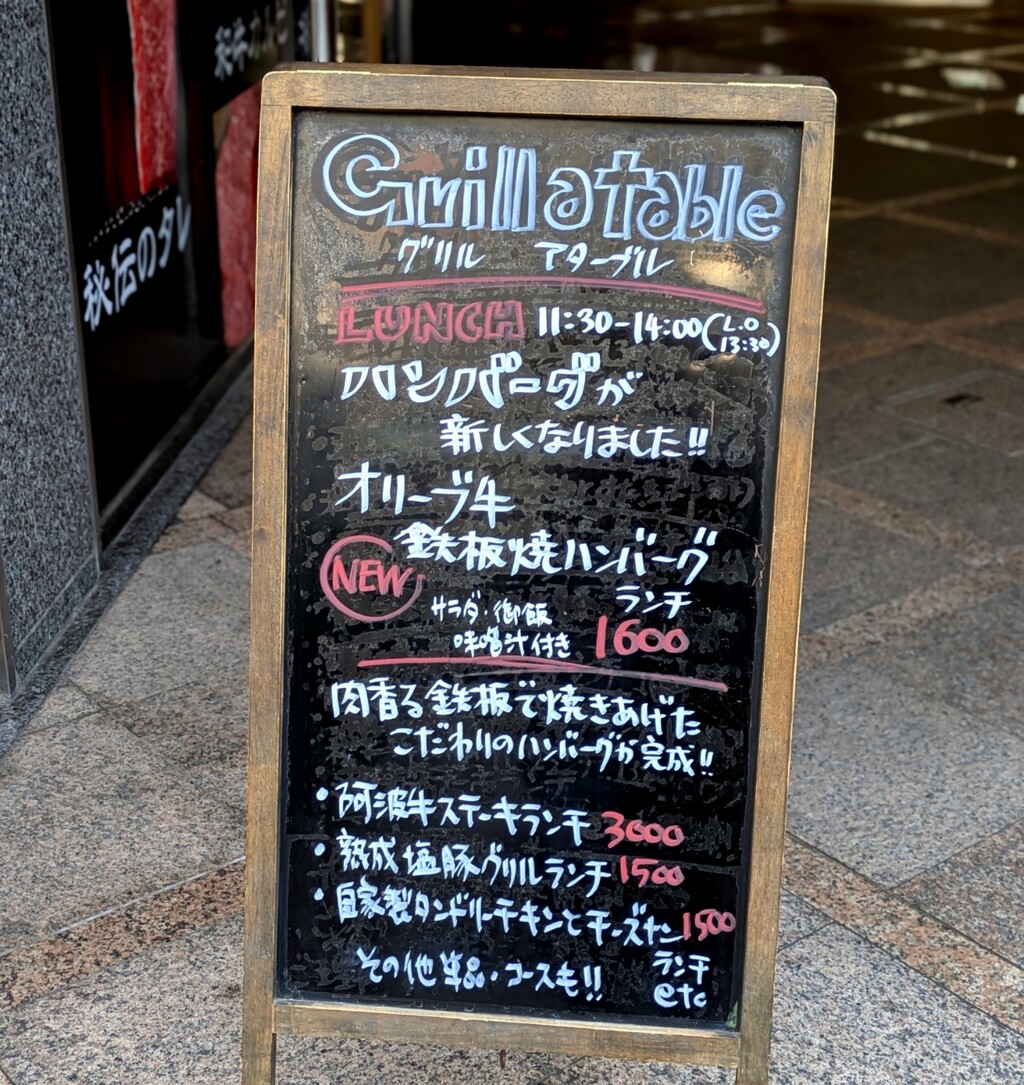 Grill a table
グリル アターブル
LUNCH 11:30-14:00(L.O 13:30)
ハンバーグが
新しくなりました!!
オリーブ牛
鉄板焼ハンバーグ
NEW
ランチ
サラダ・御飯
味噌汁付き 1600
肉香る鉄板で焼きあげた
こだわりのハンバーグが完成!!
・阿波牛ステーキランチ 3000
・熟成塩豚グリルランチ 1500
・自家製タンドリーチキンとチーズナン 1500
ランチ
その他単品・コースも!! etc
秘伝のタレ